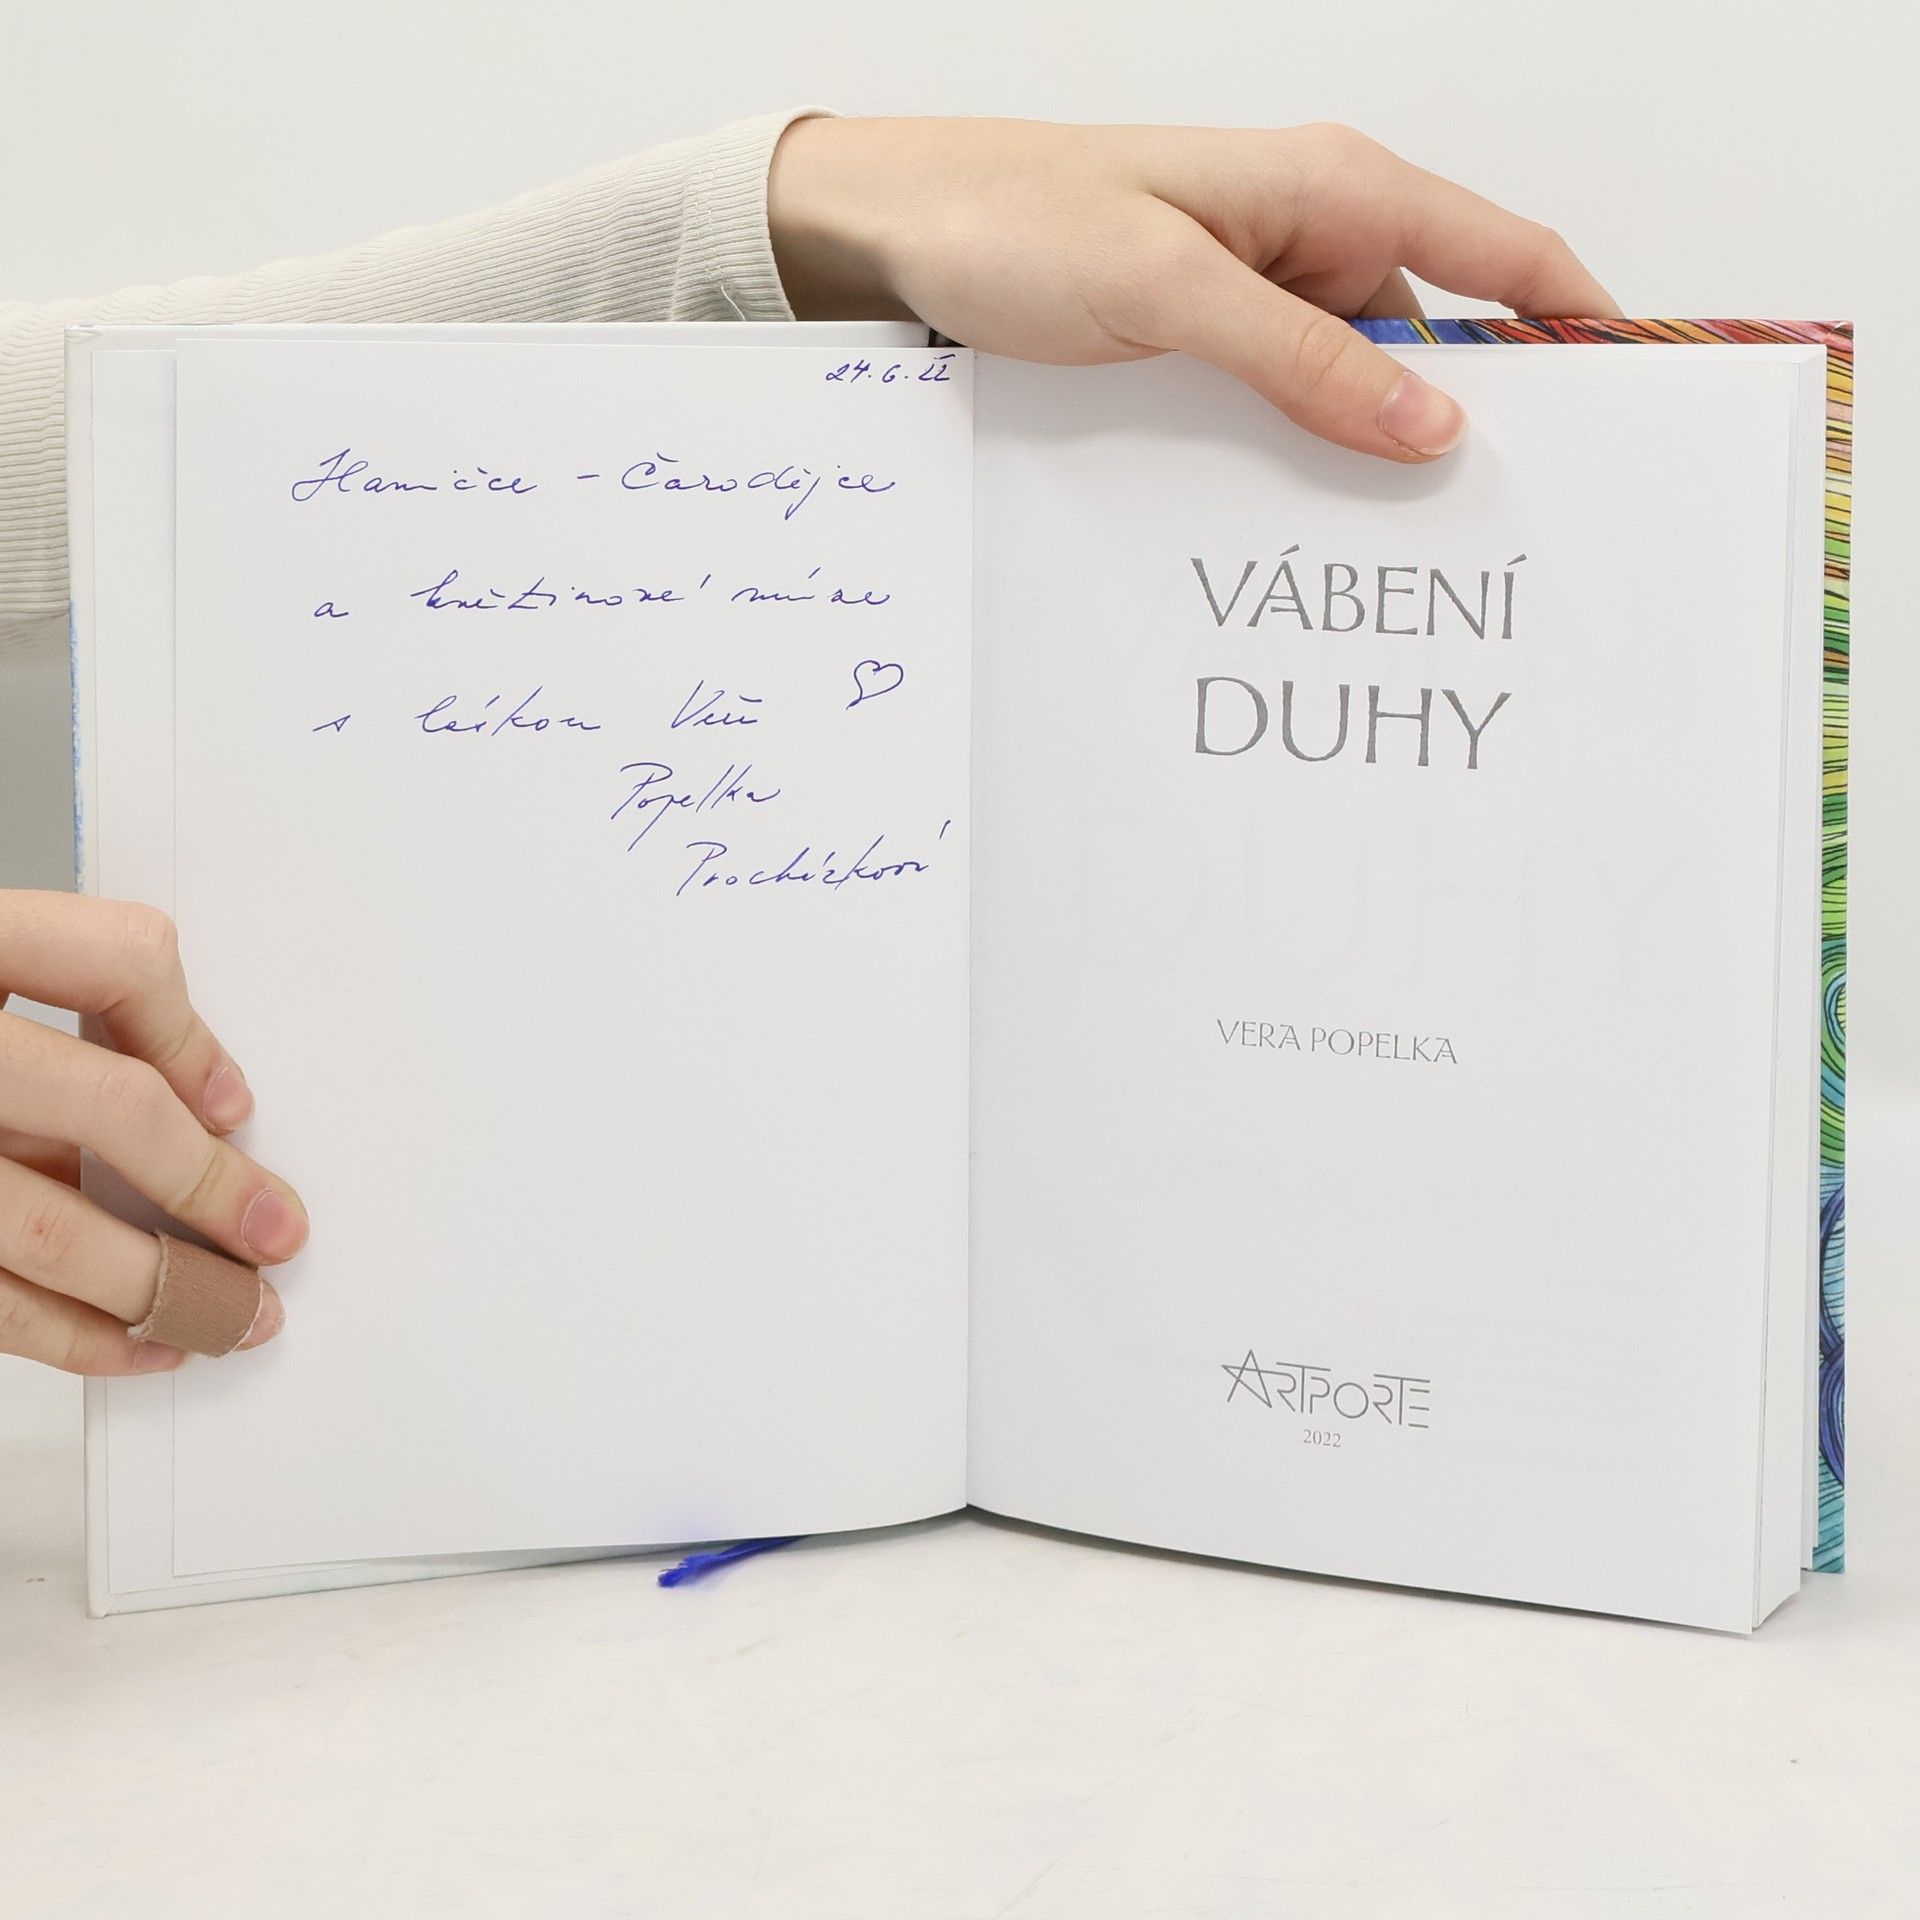 24. 6. 22
Haničce – Čarodějce
a květinové múze
s láskou Věra
Popelka
Procházková
VÁBENÍ
DUHY
VERA POPELKA
ARTPORTE
2022